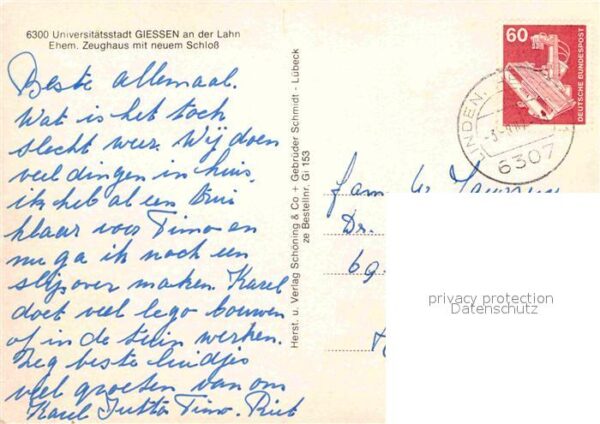 6300 Universitätsstadt GIESSEN an der Lahn
Ehem. Zeughaus mit neuem Schloß
Beste allemaal.
Wat is het toch
slecht weer. Wij doen
veel dingen in huis,
ik heb al een
klaar voor Timo en
nu ga ik nog een
slipover maken. Karel
doet veel lego bouwen
of in de tuin werken.
Zeg beste luidjes
veel groeten van ons
Karel Jutta Timo. Riet
Herst. u. Verlag Schöning & Co + Gebrüder Schmidt - Lübeck
ze Bestellnr. Gi 153
60
DEUTSCHE BUNDESPOST
LINDEN
6307
Fam
Dr.
69
privacy protection
Datenschutz